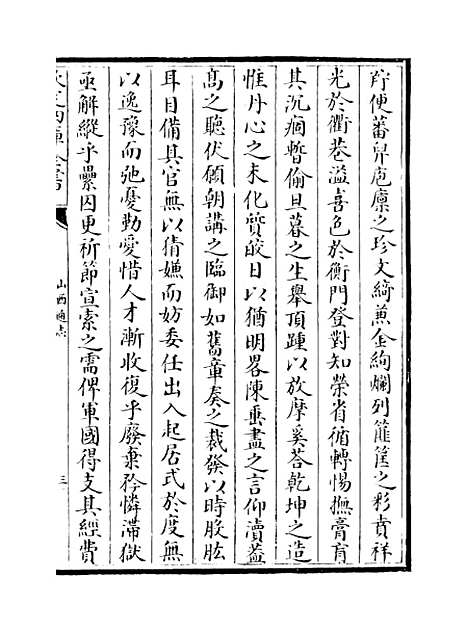 羜便蕃畀庖廩之珍文綺蒹金絢爛列篚筐之彩賁祥
光於衢巷溢喜色於衡門登對知榮省循轉惕撫膏肓
其沉痼暫偷旦暮之生舉頂踵以放摩奚荅乾坤之造
惟丹心之未化質皎日以猶明畧陳垂盡之言仰瀆蓋
髙之聽伏願朝講之臨御如舊章奏之裁發以時股肱
耳目備其官無以猜嫌而妨委任出入起居式於度無
以逸豫而弛憂勤愛惜人才漸收復乎廢棄矜憐滯獄
亟解縱乎纍囚更祈節宣索之需俾軍國得支其經費
欽定四庫全書
山西通志
三